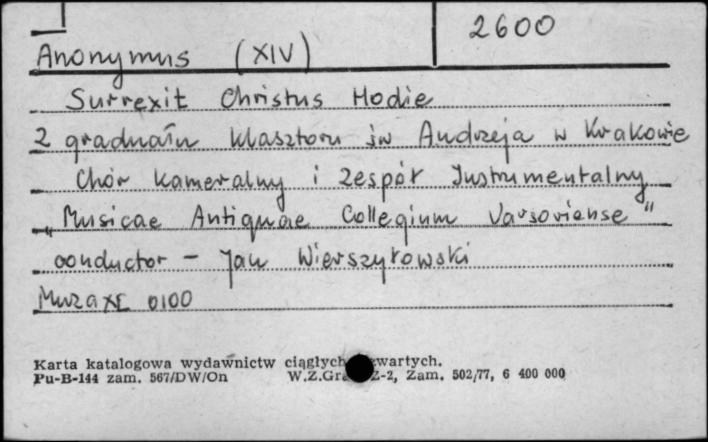 2600
Anonymus (XIV)
Surrexit Christus Hodie
2 graduału klasztoru św Andrzeja w Krakowie
Chór kameralny i Zespół Instrumentalny
„Musicae Antiquae Collegium Varsoviense"
conductor - Jan Wierszyłowski
Muza XL 0100
Karta katalogowa wydawnictw ciągłych zwartych.
Pu-B-144 zam. 567/DW/On W.Z.Graf. Z-2, Zam. 502/77, 6 400 000